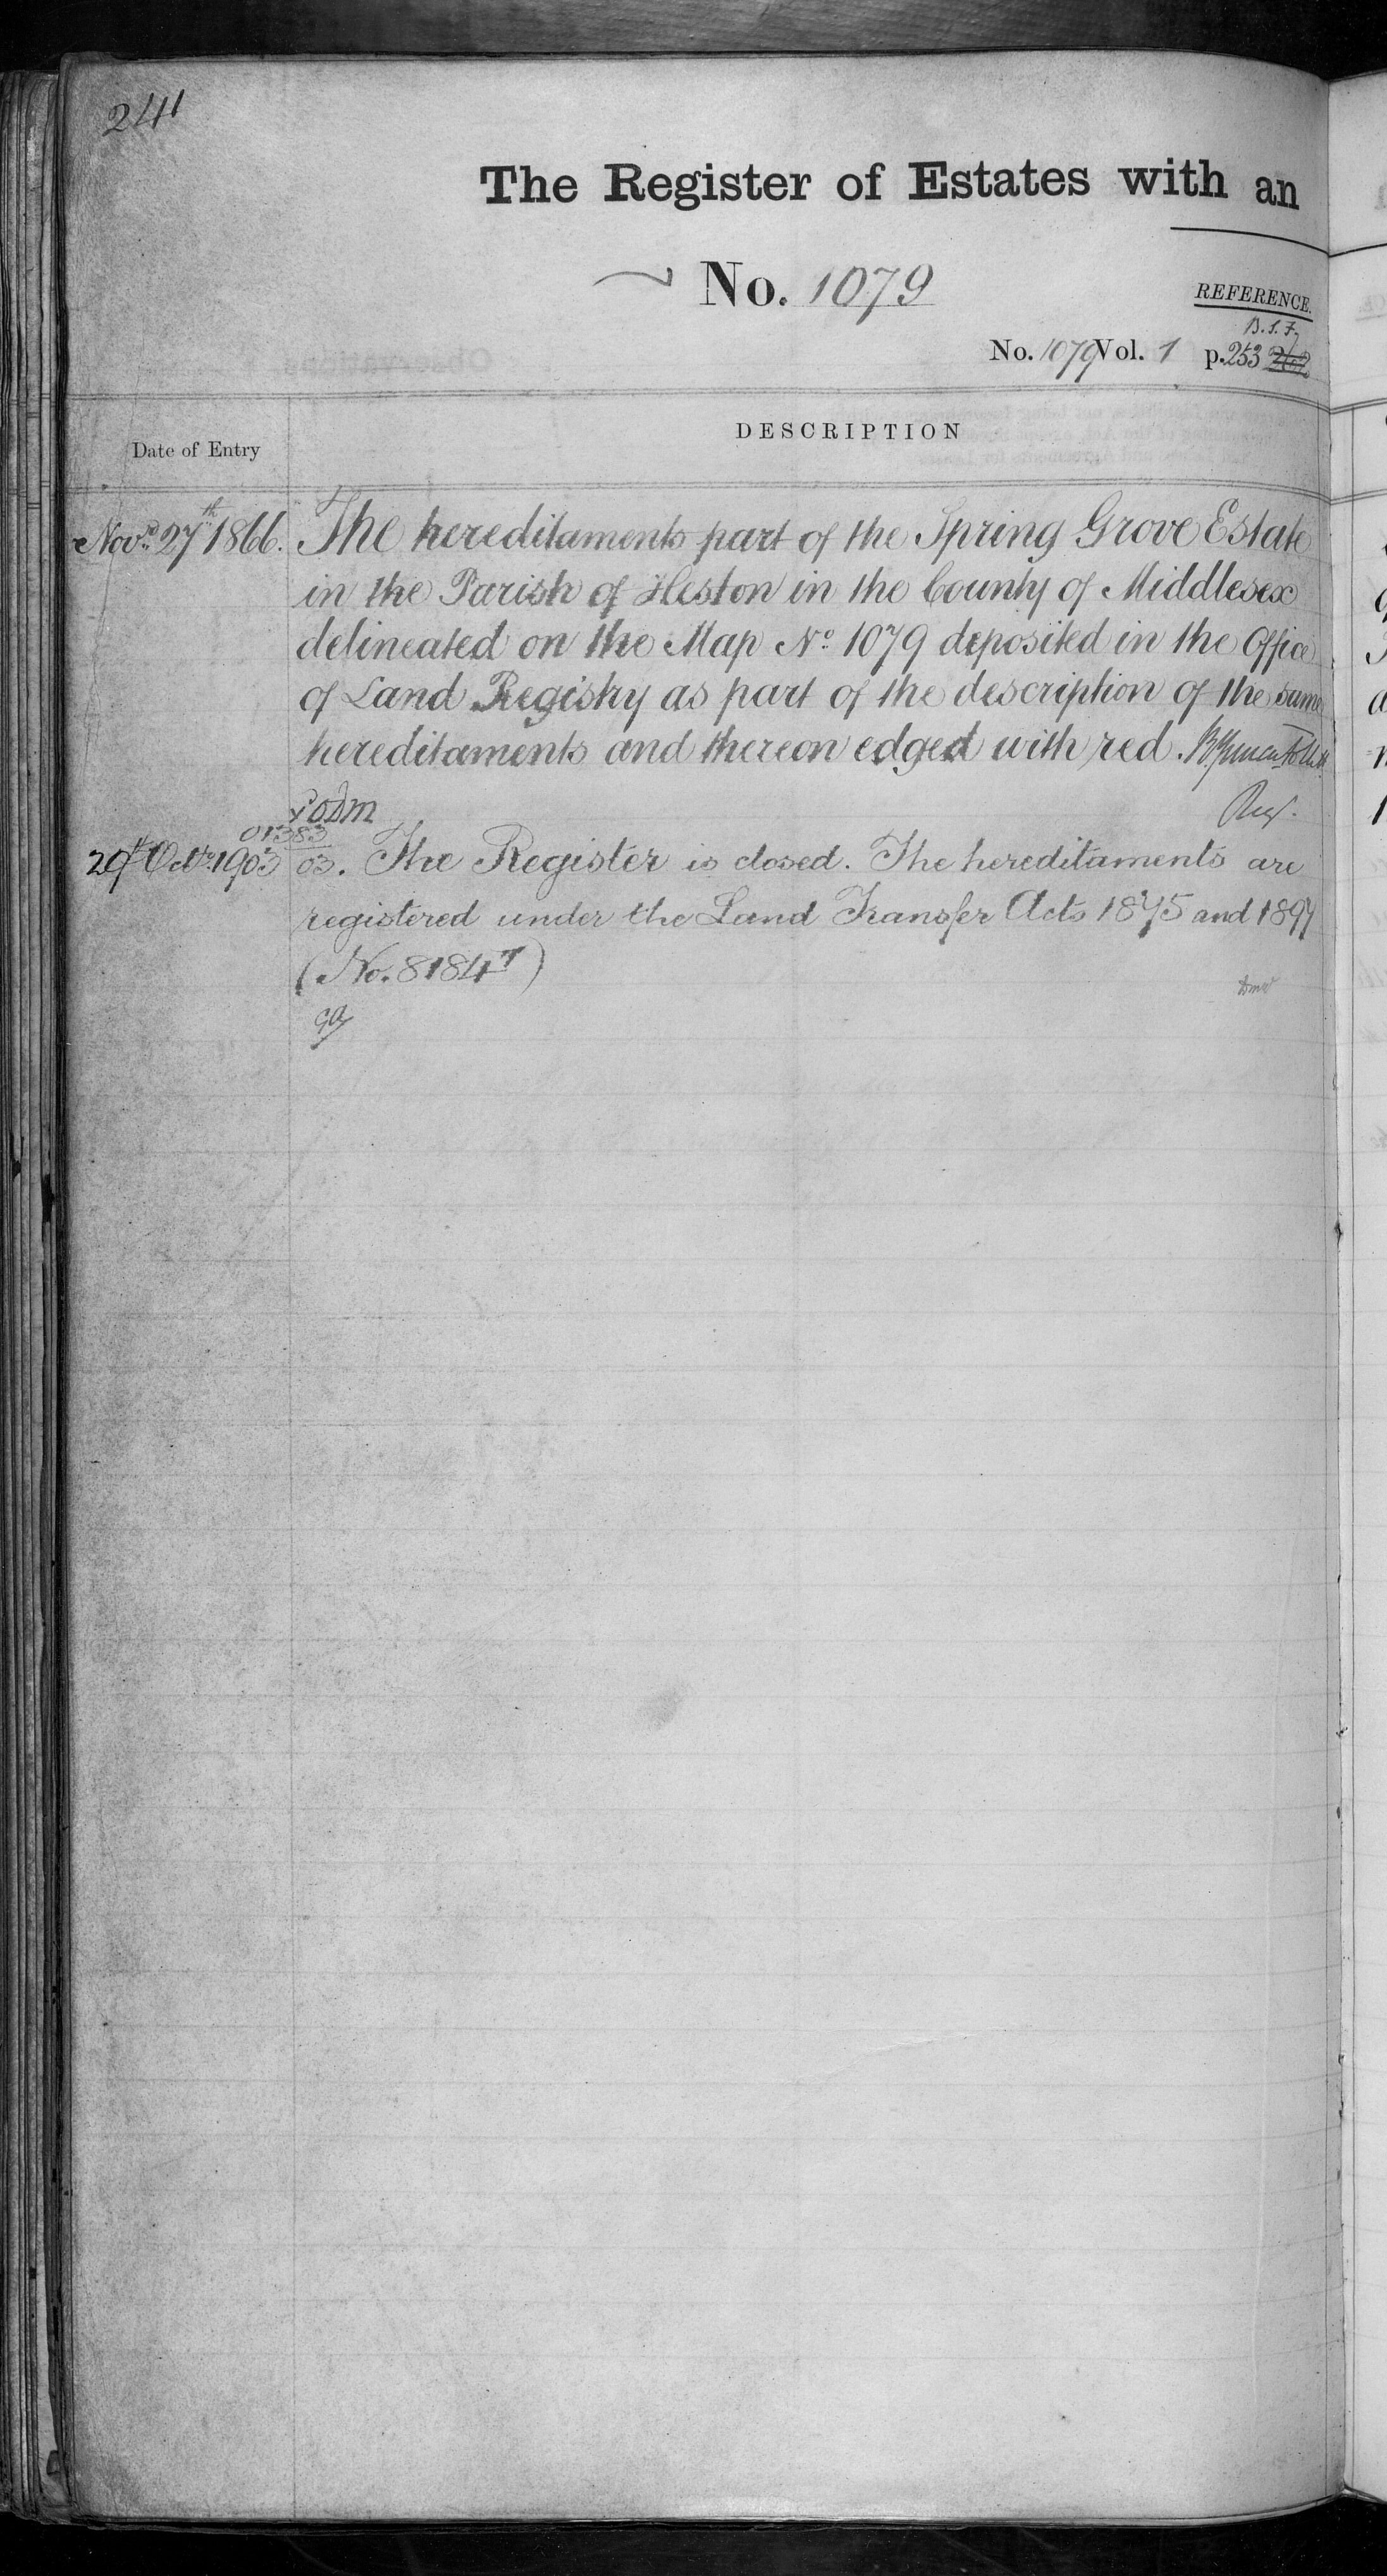 241
The Register of Estates with an
No. 1079
REFERENCE.
B.S.F.
No. 1079 Vol. 1 p. 253 262
DESCRIPTION
Date of Entry
Novr. 27th 1866. The hereditaments part of the Spring Grove Estate
in the Parish of Heston in the County of Middlesex
delineated on the Map No. 1079 deposited in the Office
of Land Registry as part of the description of the same
hereditaments and thereon edged with red.
Reg.
01383
29th Octr. 1903 03. The Register is closed. The hereditaments are
registered under the Land Transfer Acts 1875 and 1897
(No. 81847)